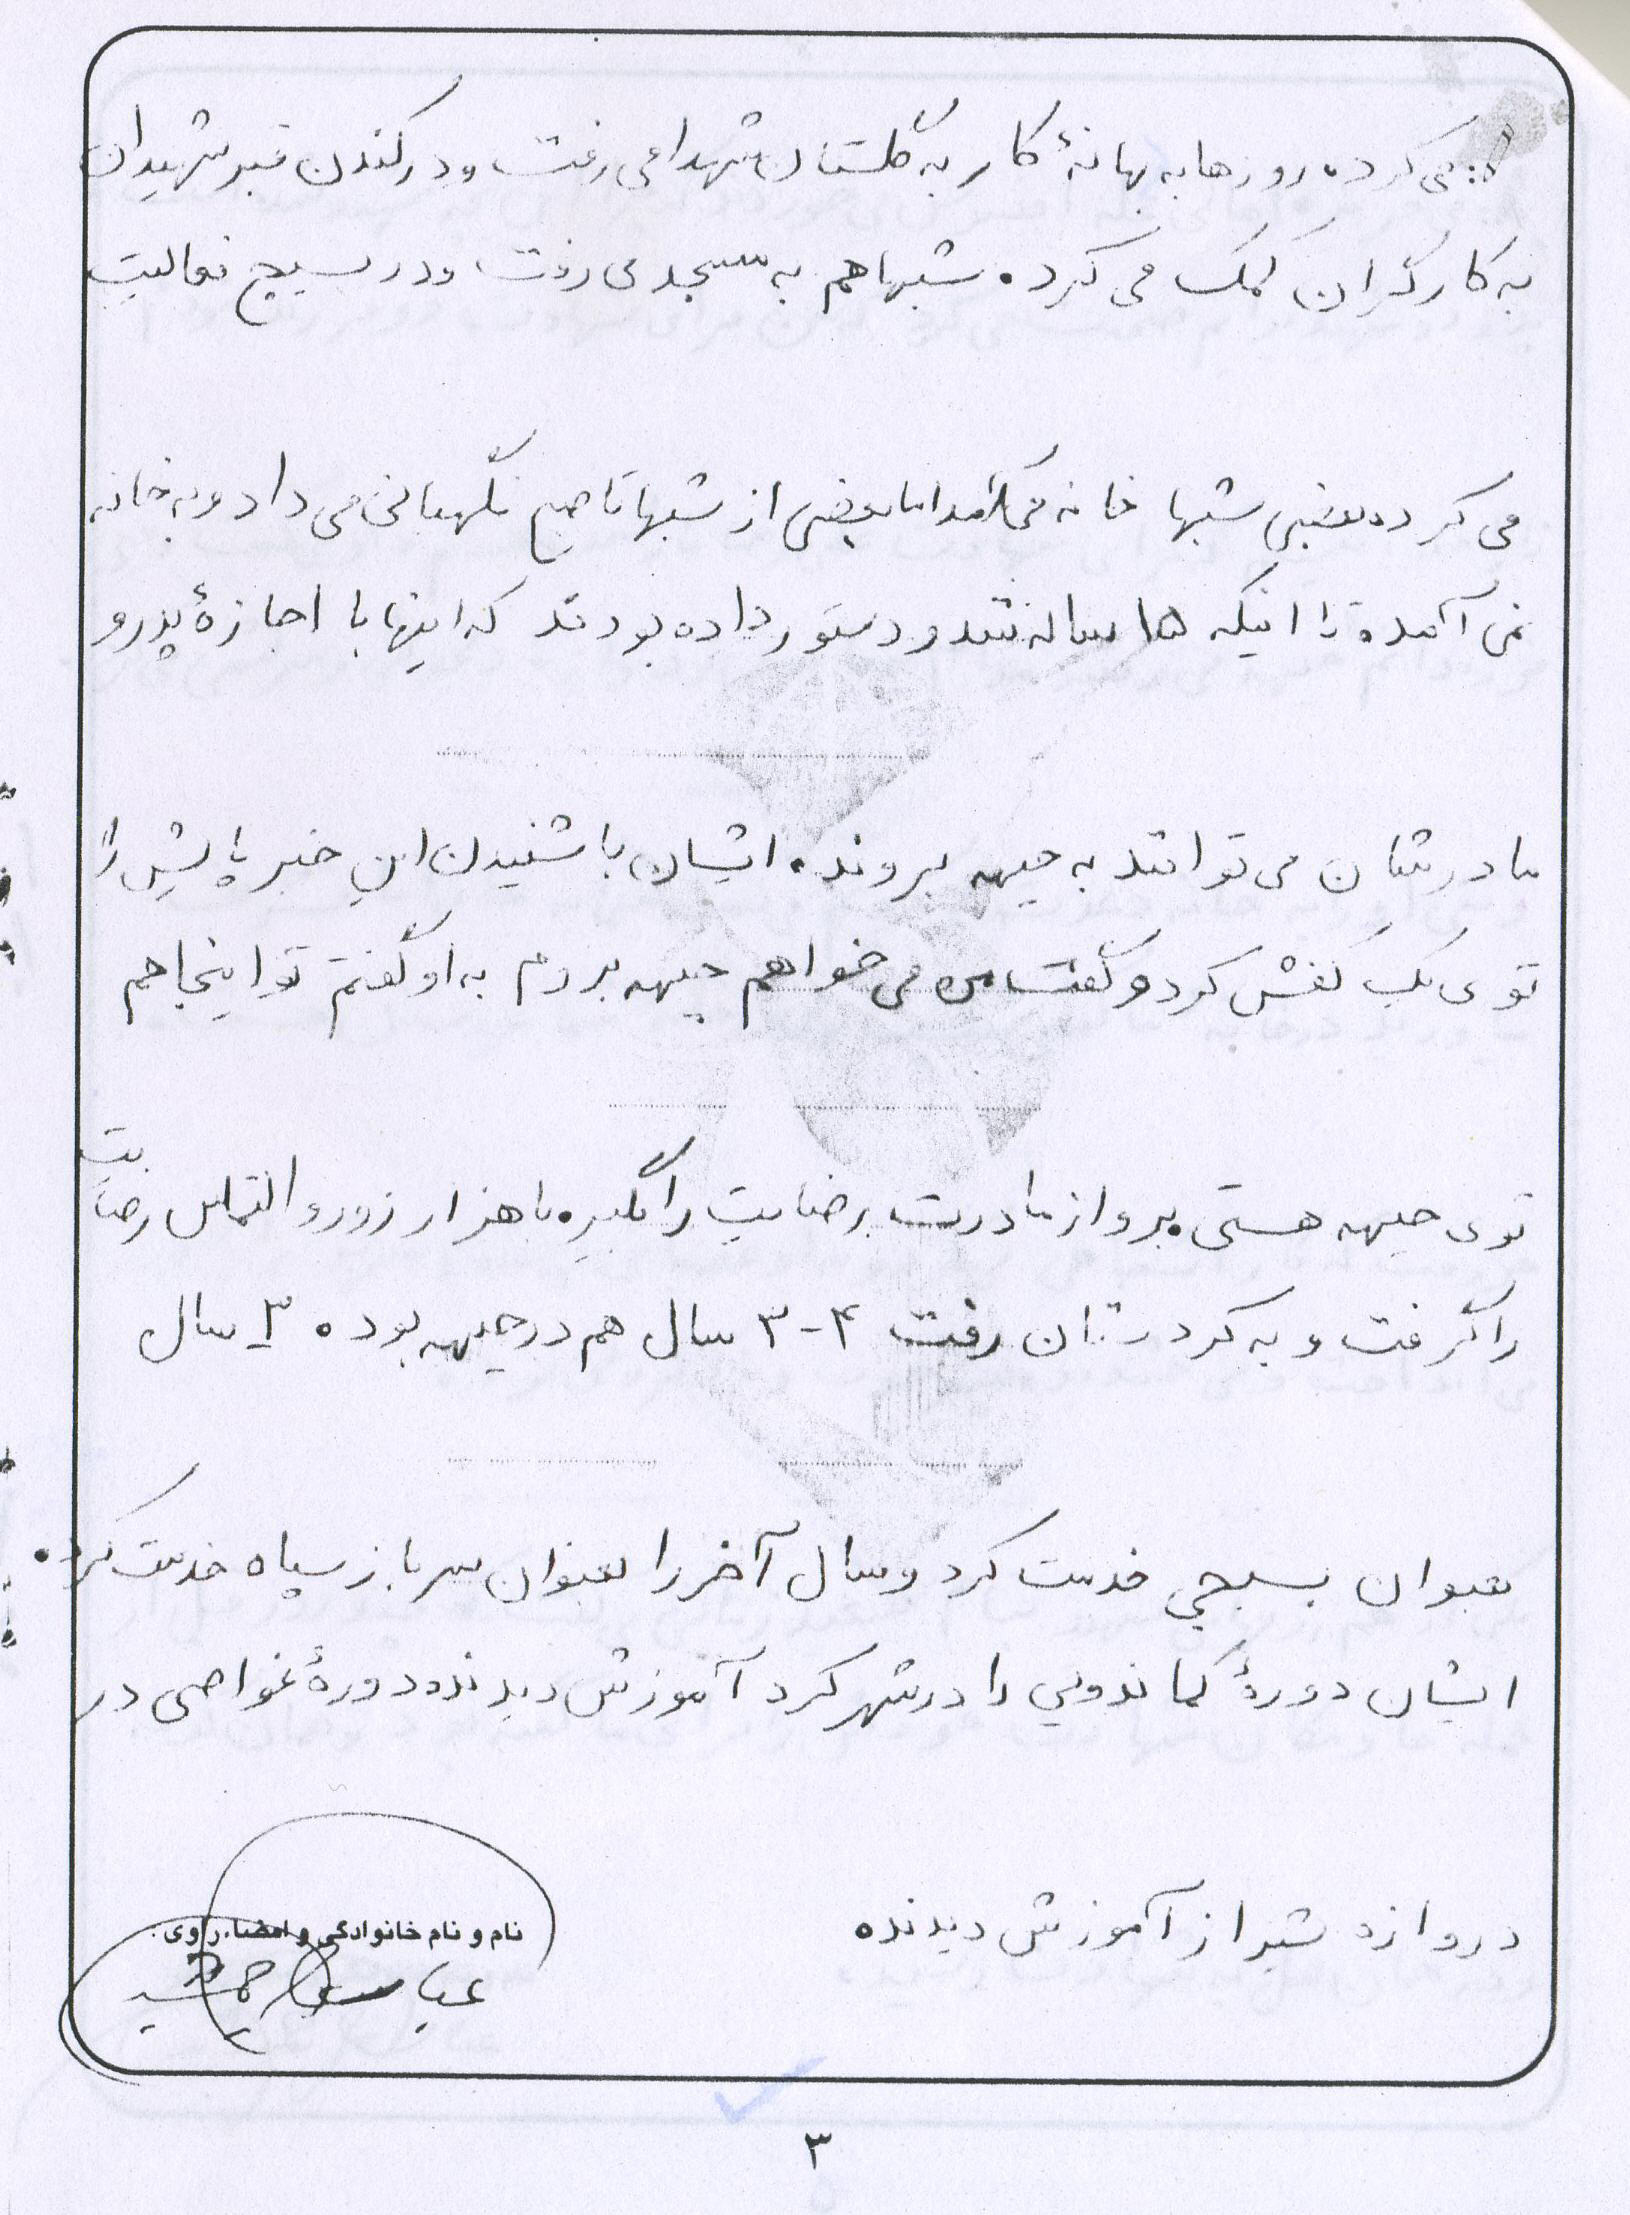 می کرد. روزها به بهانهٔ کار به گلستان شهدا می رفت و در کندن قبر شهیدان
به کارگران کمک می کرد. شبها هم به مسجد می رفت و در بسیج فعالیت
می کرد. بعضی شبها خانه می آمد اما بعضی از شبها تا صبح نگهبانی می داد و به خانه
نمی آمد. تا اینکه ساله شد و دستور داده بودند که اینها با اجازهٔ پدر و
مادرشان می توانند به جبهه بروند. ایشان با شنیدن این خبر پایش را
توی یک کفش کرد و گفت من می خواهم جبهه بروم به او گفتم تو اینجا هم
توی جبهه هستی برو از مادرت رضایت را بگیر. با هزار زور و التماس رضایت
را گرفت و به کردستان رفت ۴-۳ سال هم در جبهه بود. ۳ سال
بعنوان بسیجی خدمت کرد و سال آخر را بعنوان سرباز سپاه خدمت کرد.
ایشان دورهٔ کماندویی را در شهر کرد آموزش دیدند. دورهٔ غواصی در
دروازه شیراز آموزش دیدند.
نام و نام خانوادگی و امضاء راوی:
۳